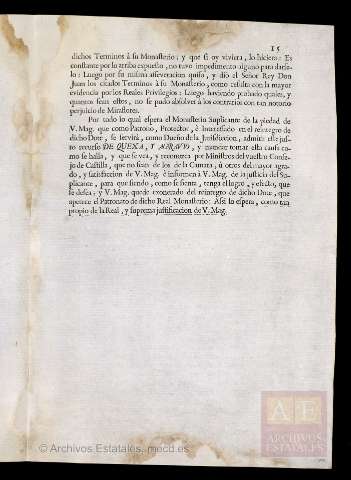 15
dichos Terminos à su Monasterio; y que si oy viviera, lo hiciera: Es
constante por lo arriba expuesto, no tuvo impedimento alguno para darse-
lo: Luego por su misma asseveracion quiso, y diò el Señor Rey Don
Juan los citados Terminos à su Monasterio, como resulta con la mayor
evidencia por los Reales Privilegios: Luego haviendo probado quales, y
quantos sean estos, no se pudo absolver à los contrarios con tan notorio
perjuicio de Miraflores.
Por todo lo qual espera el Monasterio Suplicante de la piedad de
V. Mag. que como Patrono, Protector, è Interessado en el reintegro de
dicho Dote, se servirà, como Dueño de la Jurisdiccion, admitir este jus-
to recurso DE QUEXA, Y AGRAVIO, y mandar tomar esta causa co-
mo se halla, y que se vea, y reconozca por Ministros del vuestro Conse-
jo de Castilla, que no sean de los de la Camara, ù otros del mayor agra-
do, y satisfaccion de V. Mag. è informen à V. Mag. de la justicia del Su-
plicante, para que siendo, como se sienta, tenga el logro, y efecto, que
se desea; y V. Mag. quede exonerado del reintegro de dicho Dote, que
apetece el Patronato de dicho Real Monasterio: Assi lo espera, como tan
propio de la Real, y suprema justificacion de V. Mag.
AE
ARCHIVOS
ESTATALES
© Archivos Estatales, mecd.es